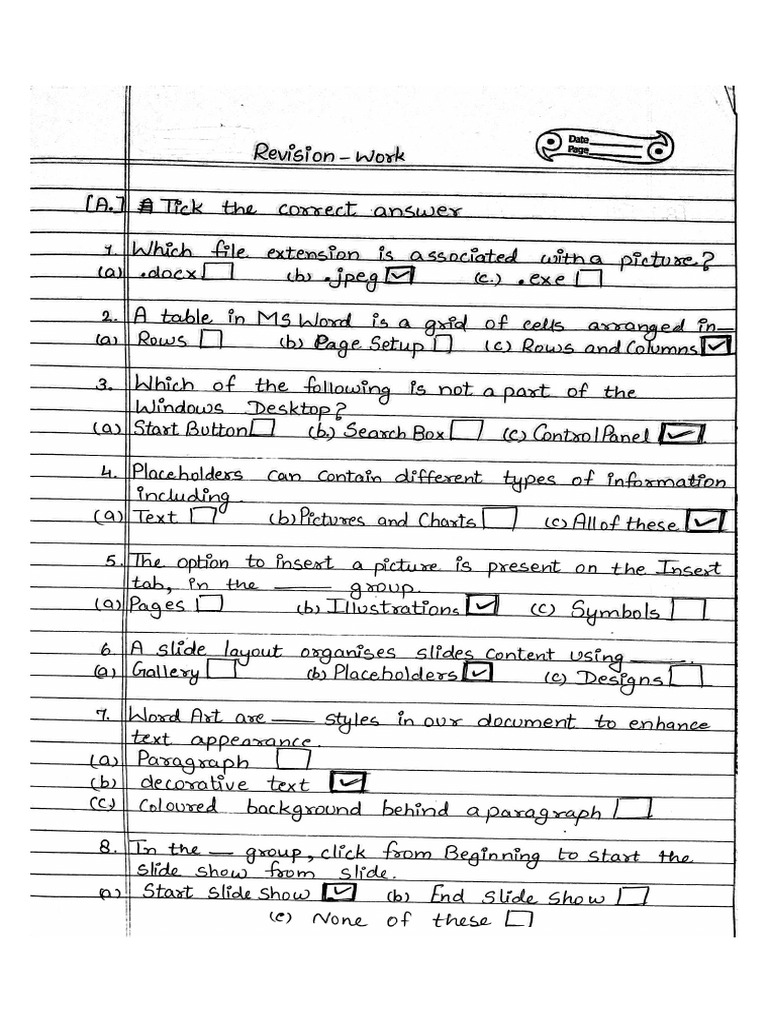 Date
Page
Revision - Work
[A.] Tick the correct answer
1. Which file extension is associated with a picture.?
(a) .docx (b) .jpeg ✓ (c.) .exe
2. A table in MS Word is a grid of cells arranged in—
(a) Rows (b) Page Setup (c) Rows and Columns ✓
3. Which of the following is not a part of the
Windows Desktop?
(a) Start Button (b.) Search Box (c) Control Panel ✓
4. Placeholders can contain different types of information
including.
(a) Text (b) Pictures and Charts (c) All of these ✓
5. The option to insert a picture is present on the Insert
tab, in the ____ group.
(a) Pages (b) Illustrations ✓ (c) Symbols
6. A slide layout organises slides content using ____.
(a) Gallery (b) Placeholders ✓ (c) Designs
7. Word Art are ____ styles in our document to enhance
text appearance.
(a) Paragraph
(b) decorative text ✓
(c) Coloured background behind a paragraph
8. In the __ group, click from Beginning to start the
slide show from slide.
(a) Start slide show ✓ (b) End slide show
(c) None of these